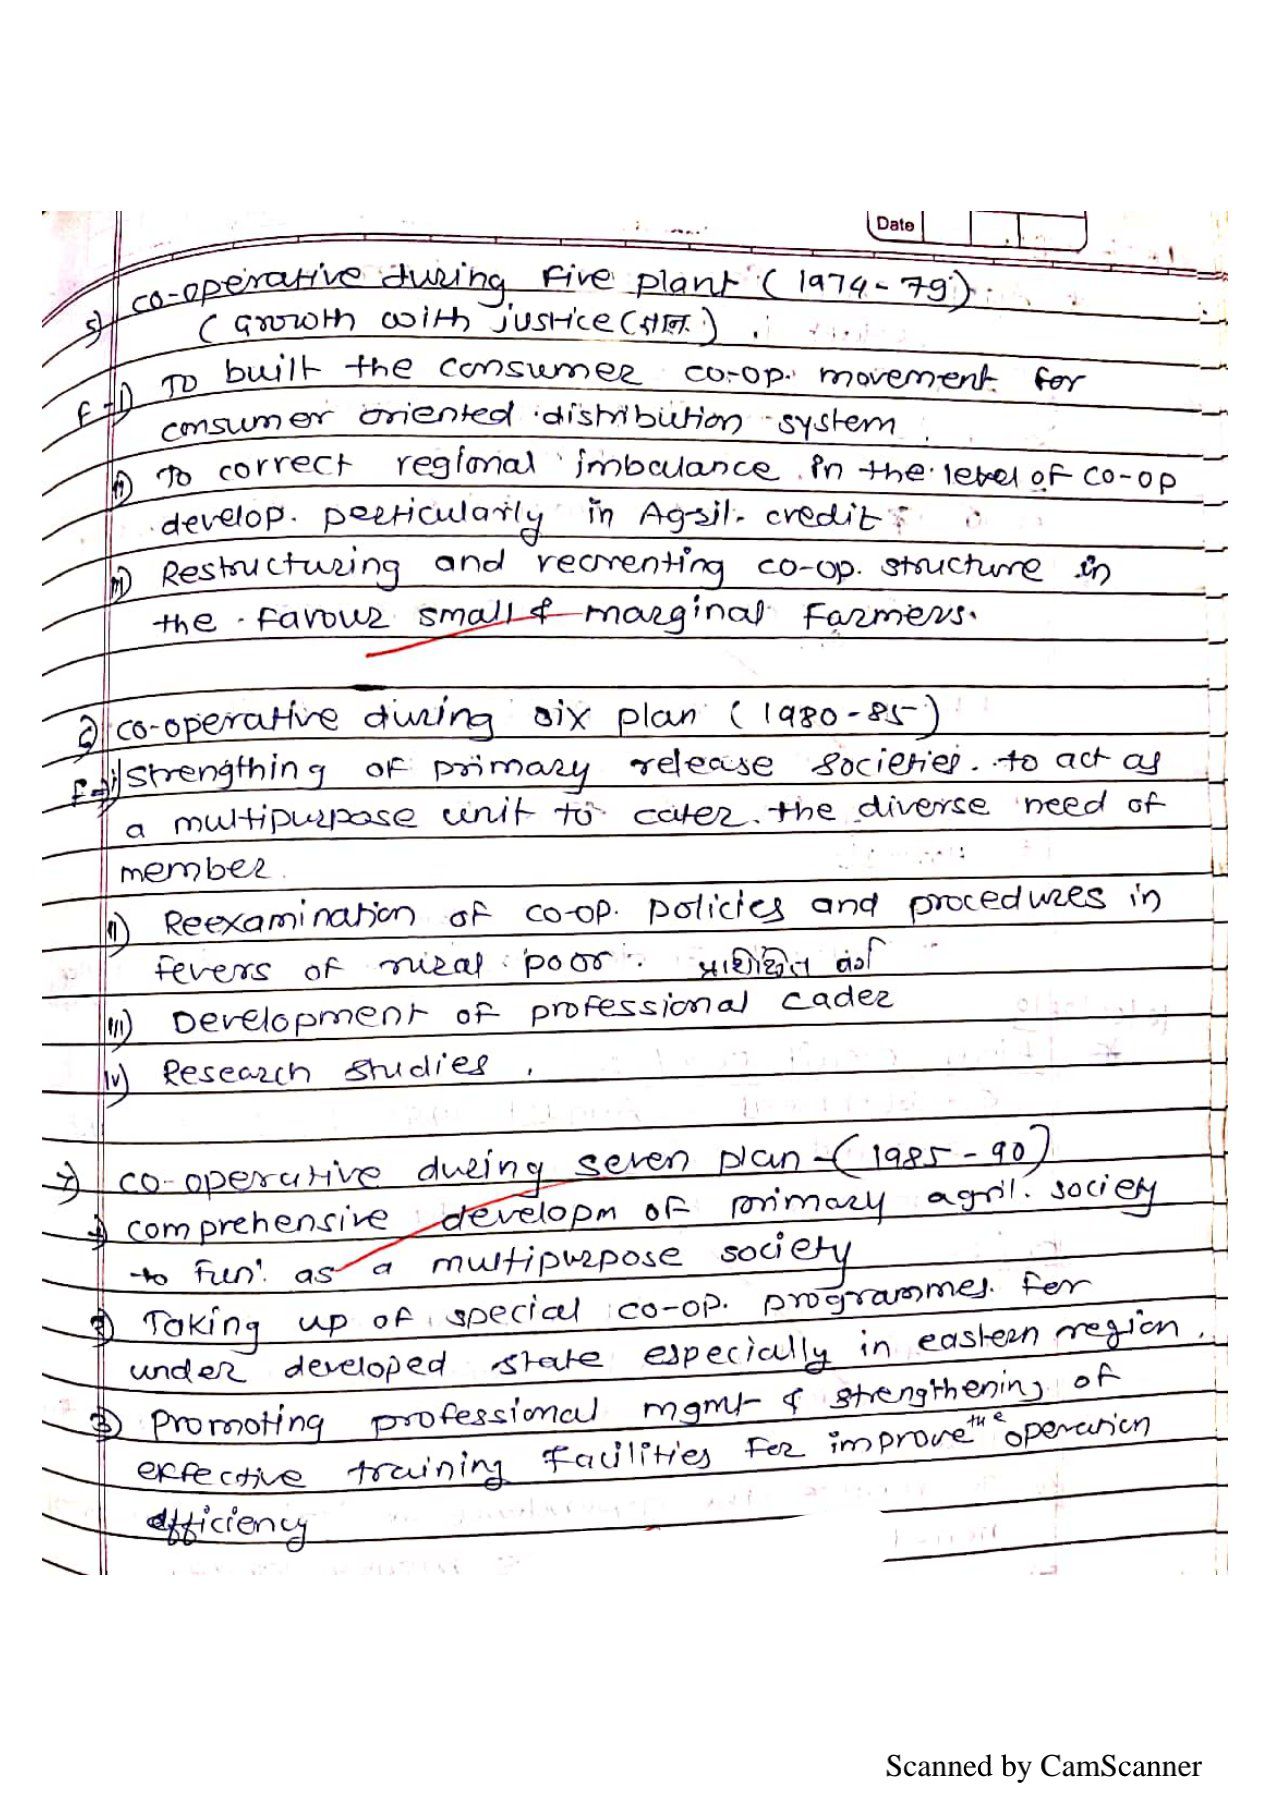 Date
5) co-operative during Five plant (1974-79)
(Growth with justice ( ) .
F-i) To built the consumer co-op. movement for
consumer oriented distribution system
ii) To correct regional imbalance in the level of co-op
develop. perticularly in Agril. credit
iii) Restructuring and reorrenting co-op. structure in
the favour small & marginal Farmers.
6) co-operative during six plan (1980-85)
F-i) strengthing of primary release societies. to act as
a multipurpose unit to cater the diverse need of
member
ii) Reexamination of co-op. policies and procedures in
fevers of rural poor. वर्ग
iii) Development of professional cader
iv) Research studies.
7) co-operative during seven plan-(1985-90)
1) comprehensive developm of primary agril. society
to fun. as a multipurpose society
2) Taking up of special co-op. programmes for
under developed state especially in eastern region.
3) promoting professional mgmt & strengthening of
effective training facilities for improve the operation
efficiency
Scanned by CamScanner